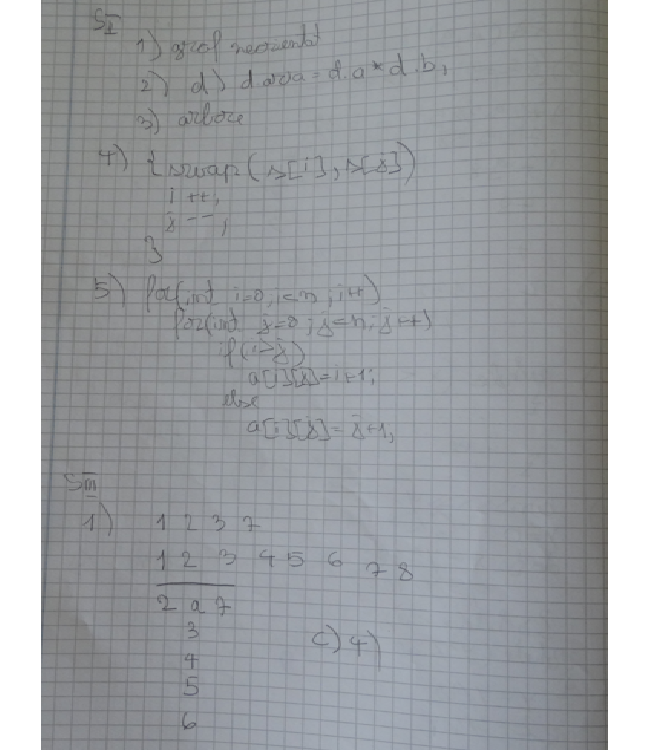 SII
1) graf neorientat
2) d) d.aria = d.a * d.b;
3) arbore
4) { swap(s[i], s[j])
i++;
j--;
}
5) for(int i=0; i<n; i++)
for(int j=0; j<n; j++)
if(i>j)
a[i][j]=i+1;
else
a[i][j]=j+1;
SIII
1) 1 2 3 7
1 2 3 4 5 6 7 8
2 a 7
3
4
c) 4)
5
6